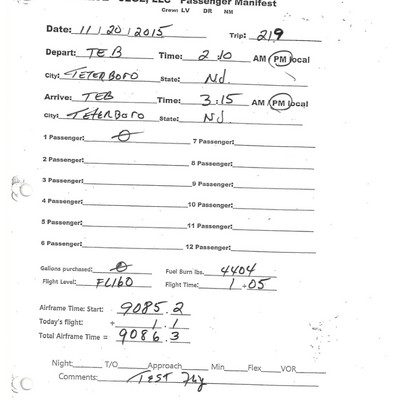 LLC Passenger Manifest
Crew: LV DR NM
Date: 11/20/2015 Trip: 219
Depart: TEB Time: 2:10 AM/PM local
City: TETERBORO State: NJ.
Arrive: TEB Time: 3:15 AM/PM local
City: TETERBORO State: NJ
1 Passenger: 0 7 Passenger:
2 Passenger: 8 Passenger:
3 Passenger: 9 Passenger:
4 Passenger: 10 Passenger:
5 Passenger: 11 Passenger:
6 Passenger: 12 Passenger:
Gallons purchased: 0 Fuel Burn lbs. 4404
Flight Level: FL160 Flight Time: 1+05
Airframe Time: Start: 9085.2
Today's flight: + 1.1
Total Airframe Time = 9086.3
Night: T/O Approach Min Flex VOR
Comments: TEST Flg